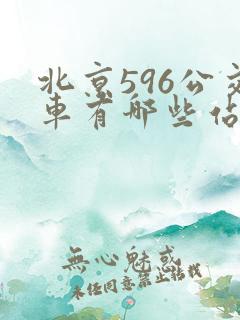 北京596公交
車有哪些佔
無心魅惑
未任同意禁止搭载